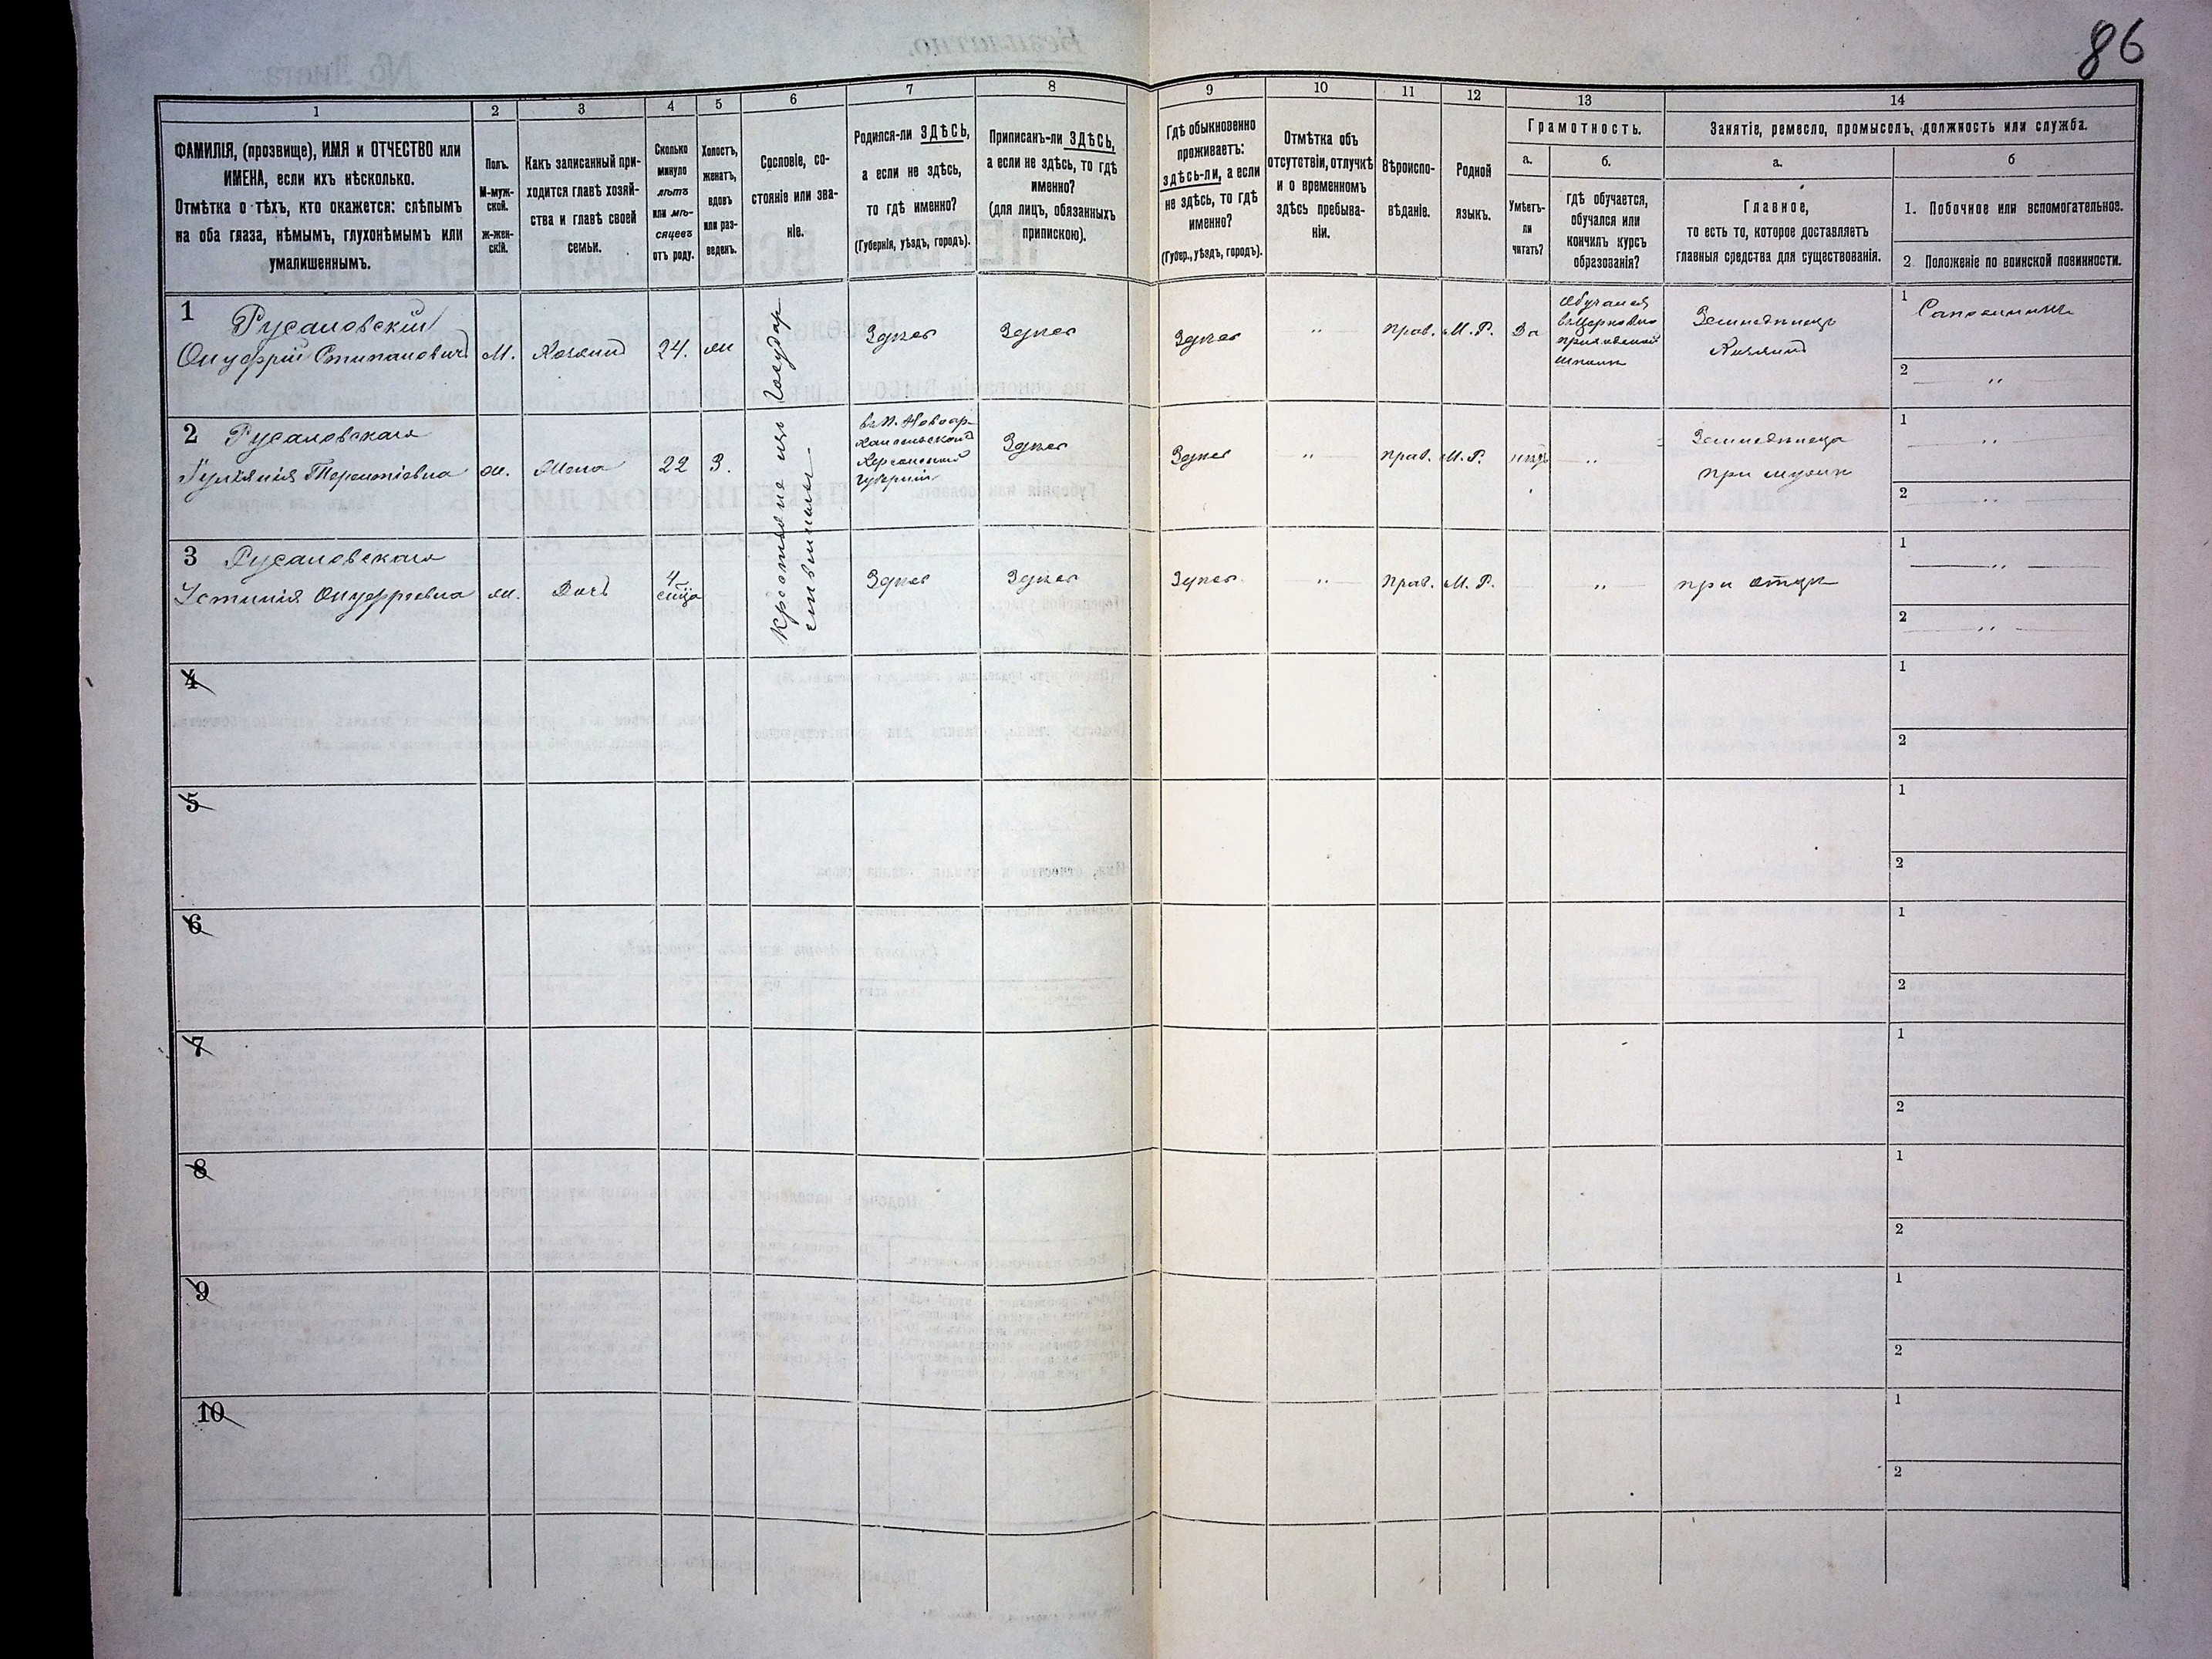 86
1
2
3
4
5
6
7
8
9
10
11
12
13
14
ФАМИЛІЯ, (прозвище), ИМЯ и ОТЧЕСТВО или
ИМЕНА, если ихъ нѣсколько.
Отмѣтка о тѣхъ, кто окажется: слѣпымъ
на оба глаза, нѣмымъ, глухонѣмымъ или
умалишеннымъ.
Полъ.
М-муж-
ской.
ж-жен-
скій.
Какъ записанный при-
ходится главѣ хозяй-
ства и главѣ своей
семьи.
Сколько
минуло
лѣтъ
или мѣ-
сяцевъ
отъ роду.
Холостъ,
женатъ,
вдовъ
или раз-
веденъ.
Сословіе, со-
стояніе или зва-
ніе.
Родился-ли ЗДѢСЬ,
а если не здѣсь,
то гдѣ именно?
(Губернія, уѣздъ, городъ).
Приписанъ-ли ЗДѢСЬ,
а если не здѣсь, то гдѣ
именно?
(для лицъ, обязанныхъ
припискою).
Гдѣ обыкновенно
проживаетъ:
здѣсь-ли, а если
не здѣсь, то гдѣ
именно?
(Губер., уѣздъ, городъ).
Отмѣтка объ
отсутствіи, отлучкѣ
и о временномъ
здѣсь пребыва-
ніи.
Вѣроиспо-
вѣданіе.
Родной
языкъ.
Грамотность.
а.
Умѣетъ-
ли
читать?
б.
гдѣ обучается,
обучался или
кончилъ курсъ
образованія?
Занятіе, ремесло, промыселъ, должность или служба.
а.
Главное,
то есть то, которое доставляетъ
главныя средства для существованія.
б
1. Побочное или вспомогательное.
2. Положеніе по воинской повинности.
1
Русаловскій
Онуфрій Стипановичъ
М.
Хозяинъ
24.
ж
Крестьяне изъ Государ
Здѣсь
Здѣсь
Здѣсь
"
Прав.
М. Р.
Да
Обучался
въ Церковно
приходской
школѣ
Земледѣлецъ
Хозяинъ
1
2
"
2
Русаловская
Терентіевна
ж.
Жена
22
З.
Херсонской
Губерніи
Здѣсь
Здѣсь
"
Прав.
М. Р.
нѣтъ
"
Земледѣлица
при мужѣ
1
"
2
"
3
Русаловская
Устинія Онуфріевна
ж.
Дочь
4
Здѣсь
Здѣсь
Здѣсь
"
Прав.
М. Р.
"
при отцѣ
1
"
2
"
4
1
2
5
1
2
6
1
2
7
1
2
8
1
2
9
1
2
10
1
2